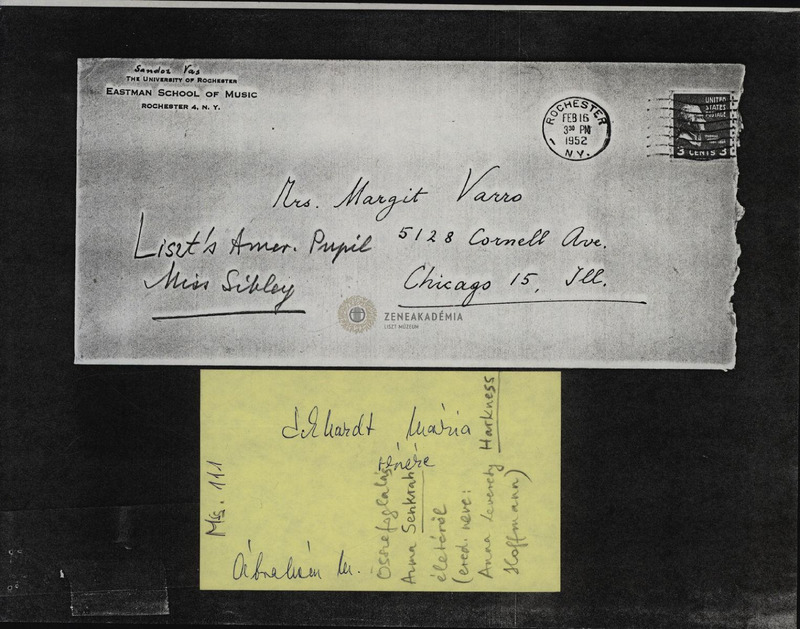 Sandor Vas
THE UNIVERSITY OF ROCHESTER
EASTMAN SCHOOL OF MUSIC
ROCHESTER 4, N. Y.
ROCHESTER
FEB 16
3 30 PM
1952
N.Y.
UNITED
STATES
POSTAGE
3 CENTS 3
Mrs. Margit Varro
5128 Cornell Ave.
Chicago 15, Ill.
Liszt's Amer. Pupil
Miss Sibley
ZENEAKADÉMIA
LISZT MÚZEUM
Eckhardt Mária
részére
Ms. 111
Ábrahám M.
Összefoglalás
Arma Senkrah
életéről
(ered. neve:
Anna Leverety Harkness
Hoffmann)